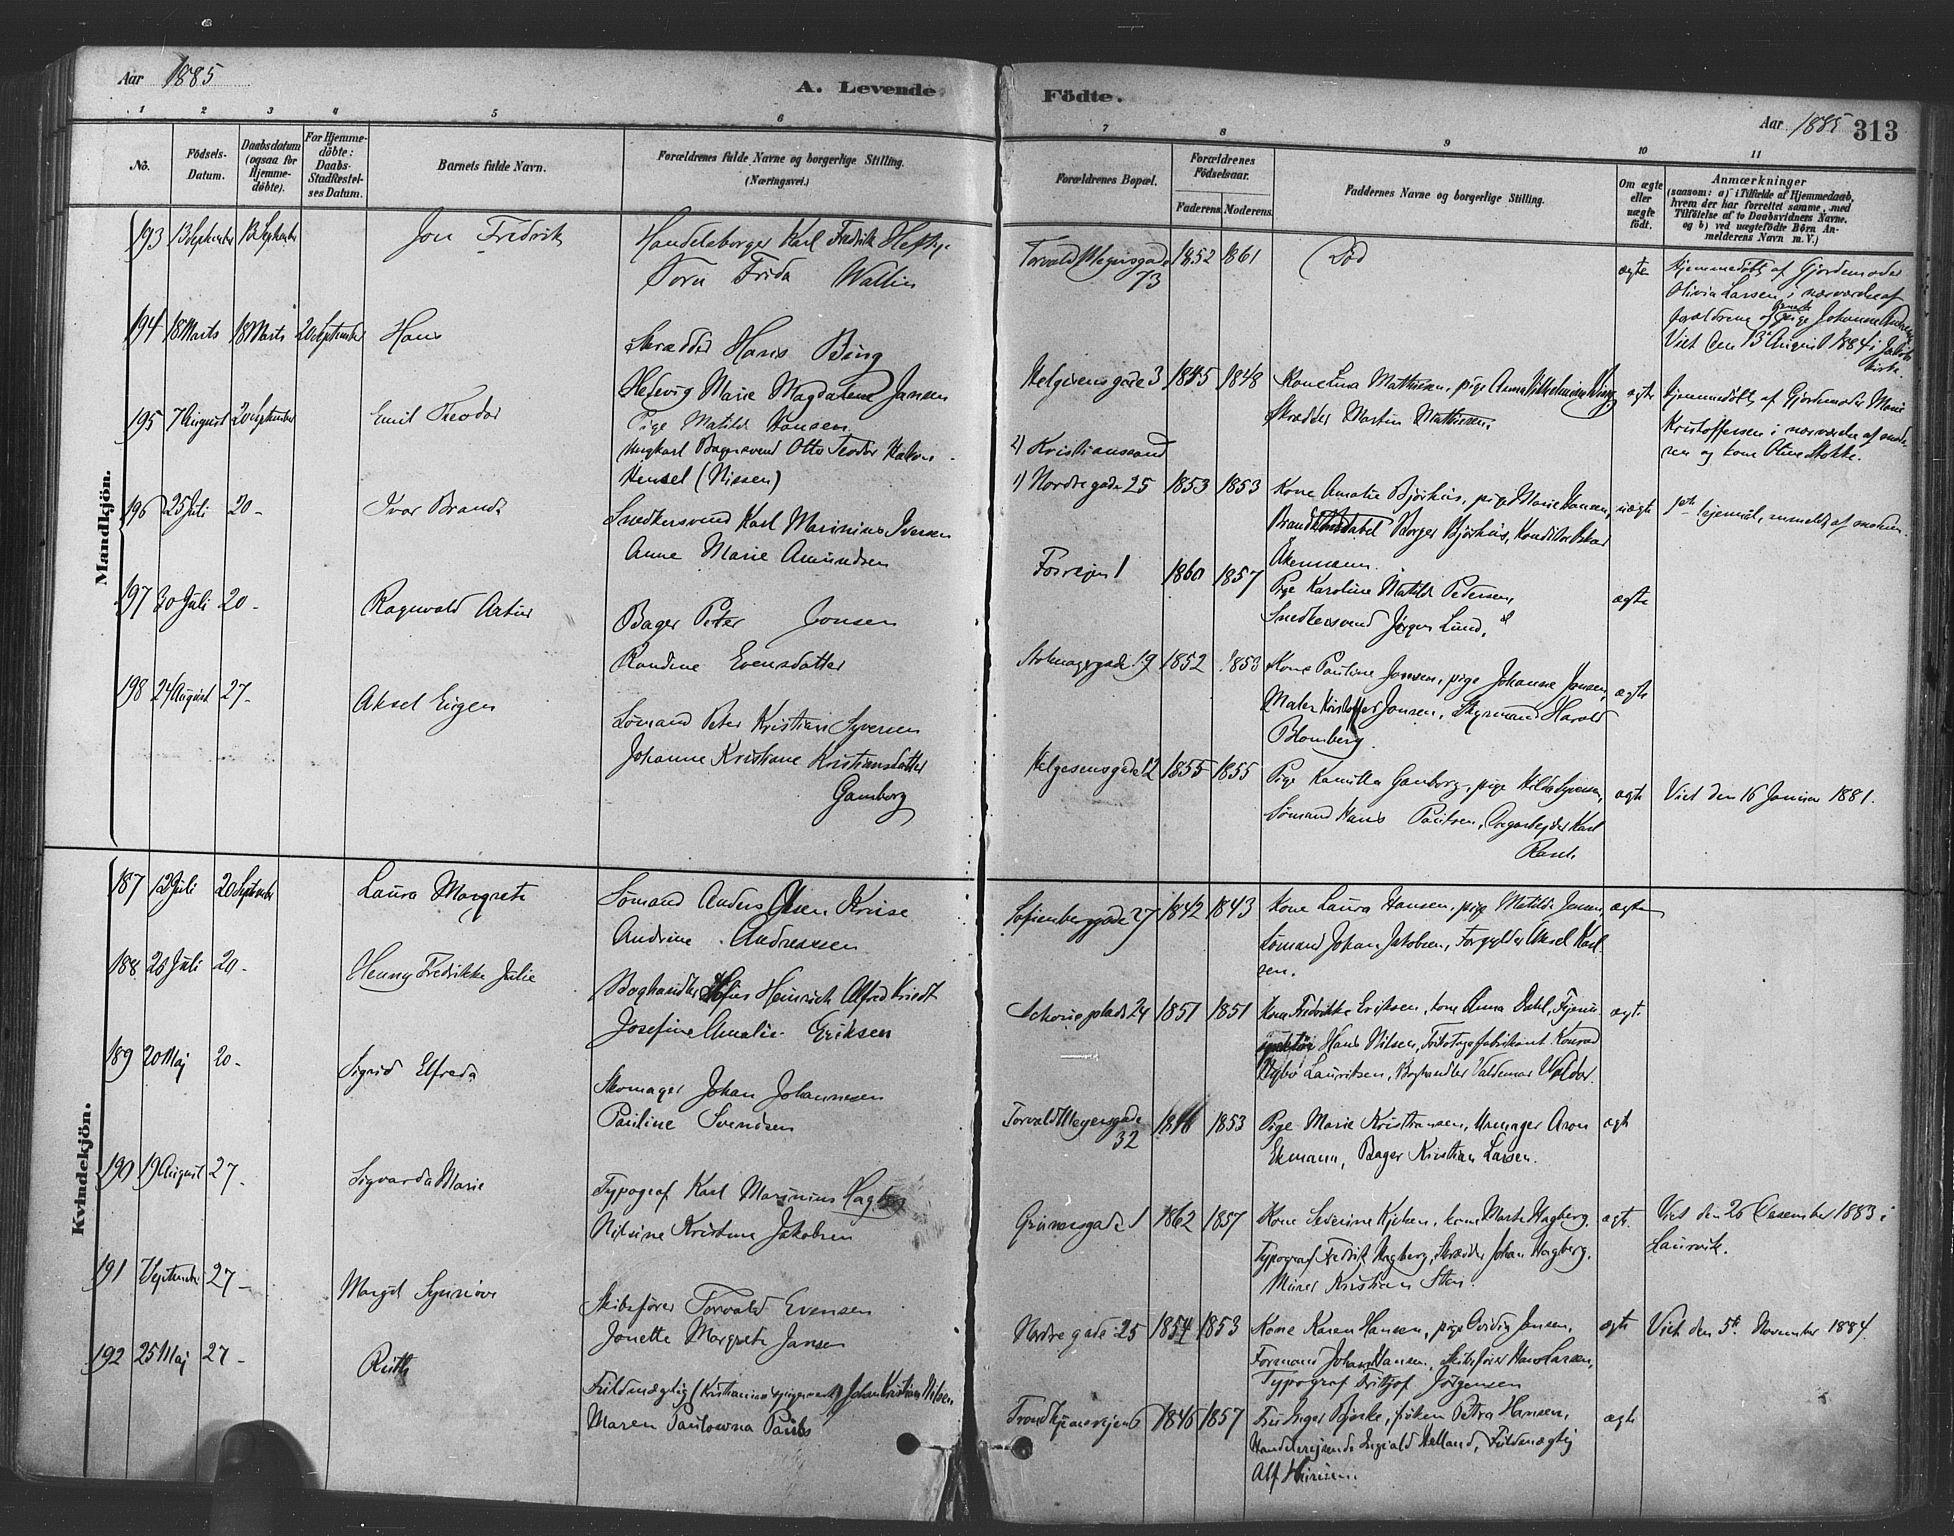 Aar 1885
A. Levende Födte.
Aar 1885 313
1 2 3 4 5 6 7 8 9 10 11
No.
Födsels-Datum.
Daabsdatum (ogsaa for Hjemme-döbte).
For Hjemme-döbte: Daabs-Stadfæstel-ses Datum.
Barnets fulde Navn.
Forældrenes fulde Navne og borgerlige Stilling. (Næringsvei.)
Forældrenes Bopæl.
Forældrenes Födselsaar.
Faderens. Moderens.
Faddernes Navne og borgerlige Stilling.
Om ægte eller uægte födt.
Anmærkninger
(saasom: a) i Tilfælde af Hjemmedaab,
hvem der har forrettet samme, med
Tilföielse af to Daabsvidners Navne.
og b) ved uægtefödte Börn An-
melderens Navn m. V.)
Mandkjön.
193 13 September 13 September Jon Fredrik Handelsborger Karl Fredrik Heftye
Toru Frida Wallin
Torvald Meyersgade 73 1852 1861 Död ægte
Hjemmedöbt af Gjordemoder
Olivia Larsen i nærværelse af
forældrene og pige Johanne
Viet den 13 August 1884 i Jakobs
kirke.
194 18 Marts 18 Marts 20 September Hans Skrædder Hans Bing
Hedevig Marie Magdalene Jansen
Helgesensgade 3 1845 1848 Kone Lina Mathisen, pige Anna Vilhelmine Bing,
Skrædder Martin Mathisen. ægte
Hjemmedöbt af Gjordemoder Marie
Kristoffersen i nærværelse af mode-
ren og kone Oline Stokke.
195 7 August 20 September Emil Teodor Pige Matilde Hansen
Ungkarl Bagersvend Otto Teodor Hakon
Hensel (Nissen)
2) Kristianssand
1) Nordregade 25 1853 1853 Kone Amalie Björhus, pige Marie Hansen,
Brandkonstabel Börger Björhus, Konditor Oskar
Åkermann. uægte
1ste leiermål, anmeldt af moderen.
196 25 Juli 20 - Ivar Brand Snedkersvend Karl Marinius Iversen
Anne Marie Amundsen
Fossveien 1 1860 1857 Pige Karoline Matilde Pedersen,
Snedkersvend Jörgen Lund. ægte
197 30 Juli 20 - Ragnvald Artur Bager Peter Jonsen
Randine Evensdatter
19 1852 1853 Kone Pauline Jonsen, pige Johanne Jonsen,
Maler Kristoffer Jonsen, Styrmand Harald
Blomberg. ægte
198 24 August 27 - Aksel Eugen Sömand Peter Kristian Syversen
Johanne Kristiane Kristiansdatter
Gamborg
Helgesensgade 12 1855 1855 Pige Kamilla Gamborg, pige Hilda Syversen,
Sömand Hans Paulsen, Karl
ægte Viet den 16 Januar 1881.
Kvindekjön.
187 12 Juli 20 September Laura Margrete Sömand Anders Olsen Kruse
Andrine Andreassen
Sofienberggade 27 1842 1843 Kone Laura Hansen, pige Matilde Jensen,
Sömand Johan Jakobsen, Forgylder Aksel Karl-
sen. ægte
188 20 Juli 20 - Henny Fredrikke Julie Boghandler Heinrich Alfred Kriedt
Josefine Amalie Eriksen
Schous plads 24 1851 1851 Kone Fredrikke Eriksen, kone Anna Dahl,
Hans Nilsen, Konrad
Lauritsen, Boghandler Valdemar ægte
189 20 Maj 20 - Sigrid Elfreda Skomager Johan Johannesen
Pauline Svendsen
Torvald Meyersgade 32 1853 Pige Marie Kristiansen, Urmager Aron
Ekmann, Bager Kristian Larsen. ægte
190 19 August 27 - Sigvarda Marie Typograf Karl Marinius Hagberg
Nilsine Kristine Jakobsen
Grünersgade 1 1862 1857 Kone Severine Kjelsen, kone Marte Hagberg,
Typograf Fredrik Hagberg, Skrædder Johan Hagberg,
Murer Kristian ægte
Viet den 26 Desember 1883 i
Laurvik.
191 7 September 27 - Margit Synnöve Skibsförer Torvald Evensen
Jonette Margrete Jansen
Nordregade 25 1854 1853 Kone Karen Hansen, pige Ovidia Jonsen,
Formand Johan Hansen, Skibsförer Hans Larsen,
Typograf Fritjof Jörgensen ægte
Viet den 5te November 1884.
192 25 Maj 27 - Ruth Fuldmægtig (Kristiania) Johan Kristian Nilsen
Maren Paulowna Pauls
Trondhjemsvejen 6 1846 1857 Fru Inger Bjerke, fröken Petra Hansen,
Handelsrejsende Ingvald Helland, Fuldmægtig
Alf ægte